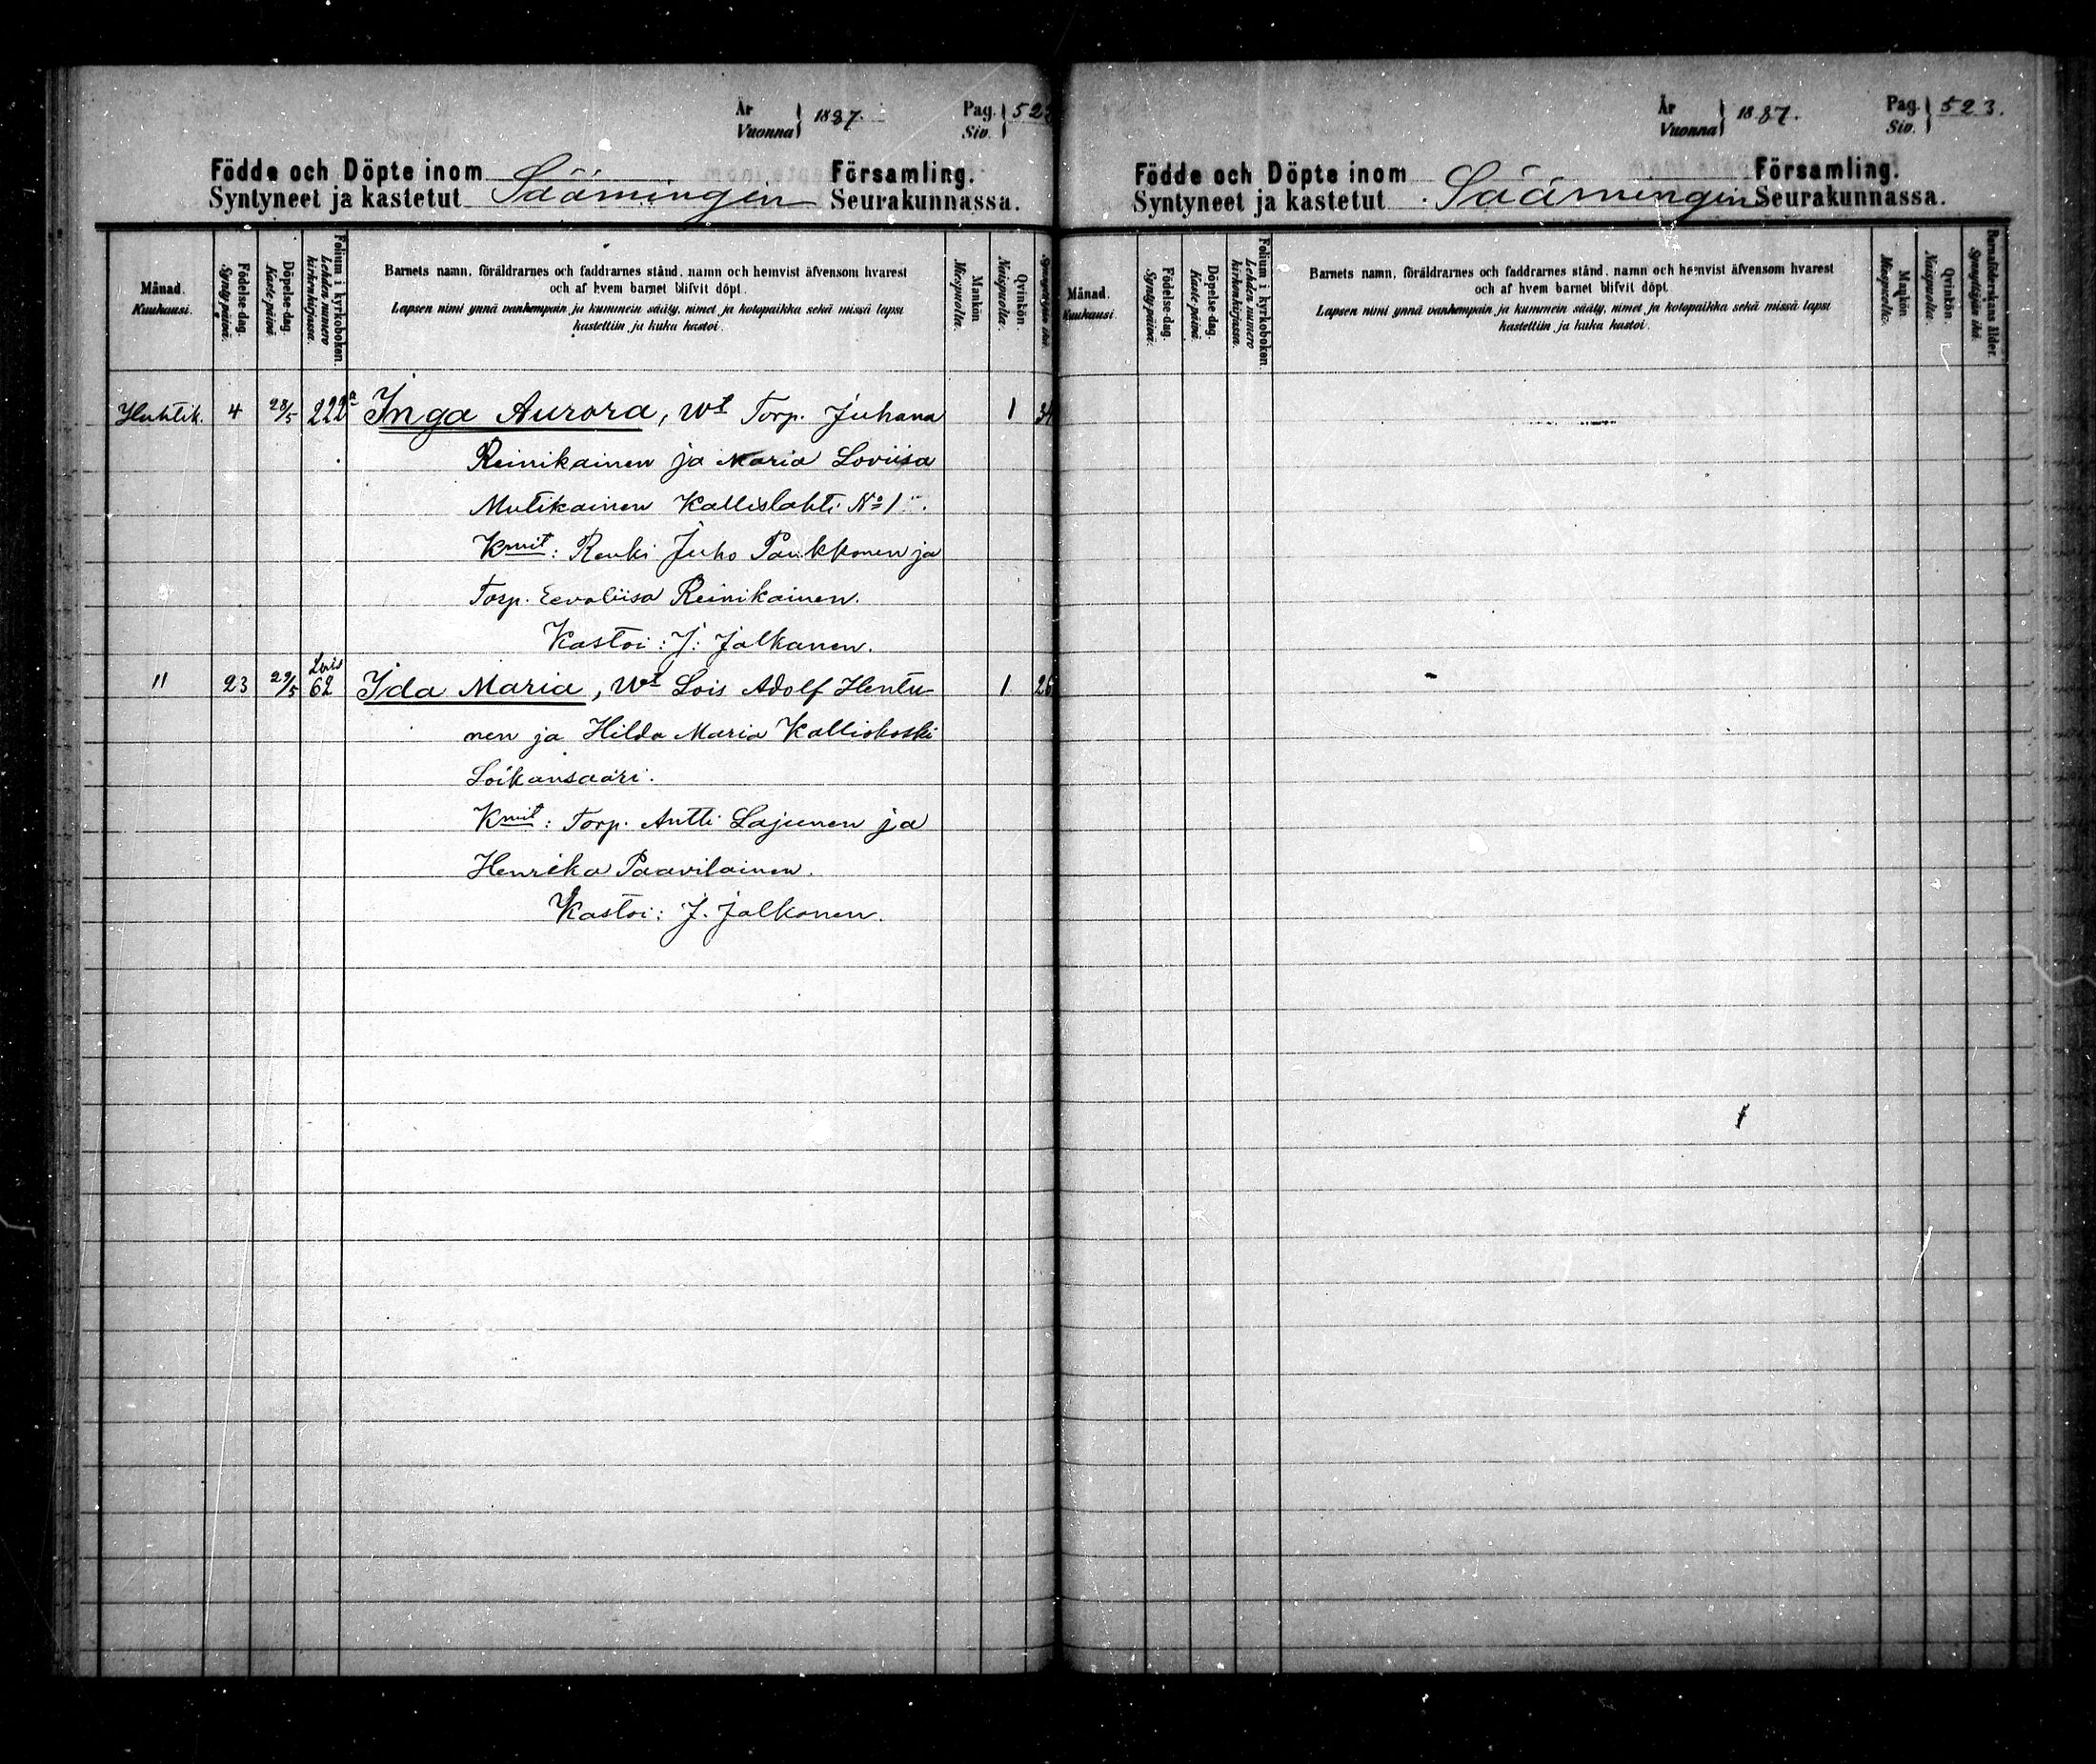 År Vuonna 1887. Pag. Siv. 522
Födde och Döpte inom Församling.
Syntyneet ja kastetut Säämingin Seurakunnassa.
Månad. Kuukausi.
Födelse-dag. Synty-päivä.
Döpelse-dag. Kaste-päivä.
Folium i kyrkoboken. Lehden numero kirkonkirjassa.
Barnets namn, föräldrarnes och faddrarnes stånd, namn och hemvist äfvensom hvarest
och af hvem barnet blifvit döpt.
Lapsen nimi ynnä vanhempain ja kummein sääty, nimet ja kotopaikka sekä missä lapsi
kastettiin ja kuka kastoi.
Mankön. Miespuolta.
Qvinkön. Naispuolta.
Synnyttäjän ikä.
Huhtik. 4 28/5 222a Inga Aurora, Wt Torp. Juhana 1 34
Reinikainen ja Maria Loviisa
Mutikainen Kallislahti No 1.
Kmit: Renki Juho Paukkonen ja
Torp. Eevaliisa Reinikainen.
Kastoi: J. Jalkanen.
Lois
" 23 29/5 62 Ida Maria, Wt Lois Adolf Hentu- 1 26
nen ja Hilda Maria Kalliokoski
Loikansaari.
Kmit: Torp. Antti Lajunen ja
Henrika Paavilainen.
Kastoi: J. Jalkanen.
År Vuonna 1887. Pag. Siv. 523.
Födde och Döpte inom Församling.
Syntyneet ja kastetut Säämingin Seurakunnassa.
Månad. Kuukausi.
Födelse-dag. Synty-päivä.
Döpelse-dag. Kaste-päivä.
Folium i kyrkoboken. Lehden numero kirkonkirjassa.
Barnets namn, föräldrarnes och faddrarnes stånd, namn och hemvist äfvensom hvarest
och af hvem barnet blifvit döpt.
Lapsen nimi ynnä vanhempain ja kummein sääty, nimet ja kotopaikka sekä missä lapsi
kastettiin ja kuka kastoi.
Mankön. Miespuolta.
Qvinkön. Naispuolta.
Barnaföderskans ålder. Synnyttäjän ikä.